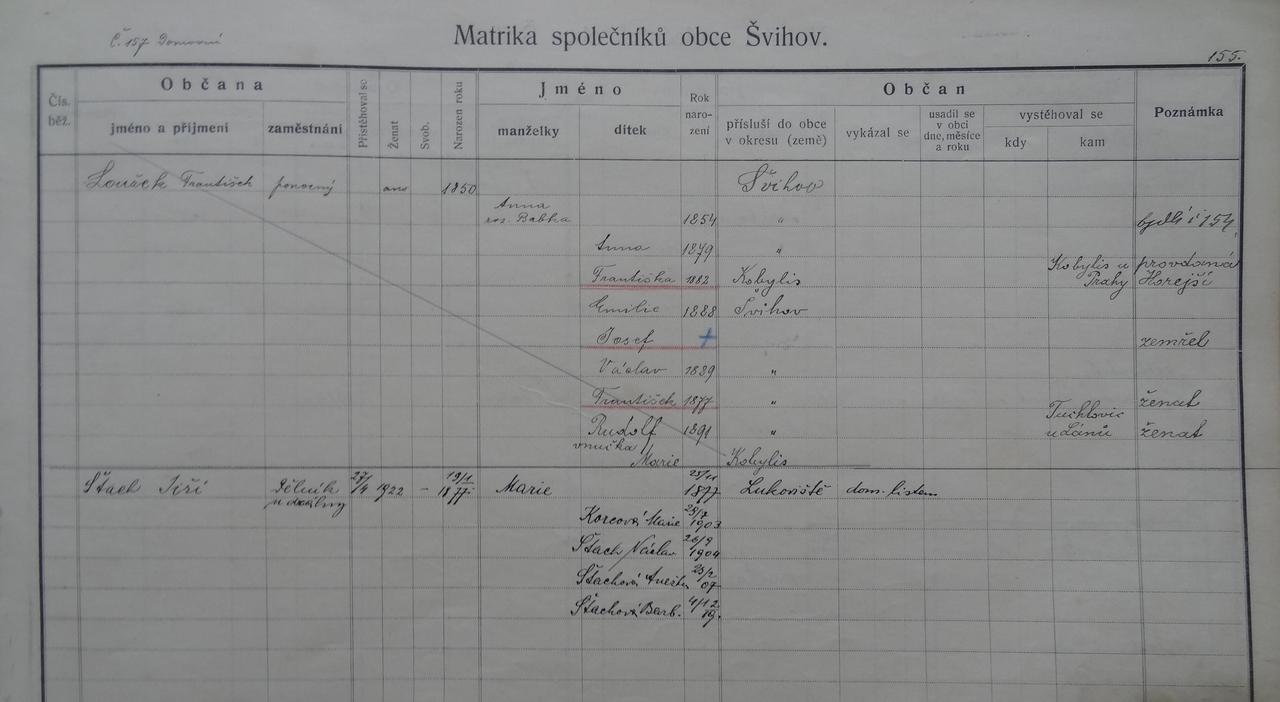 Č 157 Domovní
Matrika společníků obce Švihov.
155.
Čís. běž.
Občana
jméno a přijmení
zaměstnání
Přistěhoval se
Ženat
Svob.
Narozen roku
Jméno
manželky
dítek
Rok naro- zení
Občan
přísluší do obce v okresu (země)
vykázal se
usadil se v obci dne, měsíce a roku
vystěhoval se
kdy
kam
Poznámka
František ponocný ano 1850 Švihov
Anna
roz. Babka 1854 " bydlí č 154
Anna 1879 "
Františka 1882 Kobylis Kobylis u Prahy provdaná Horejší
Emilie 1888 Švihov
Josef + zemřel
Václav 1889 "
František 1877 " ženat
Rudolf 1891 " Tuchlovic u Lánů ženat
vnučka
Marie Kobylis
Štach Jiří Dělník 27/4 1922 – 19/1 1877 Marie 25/11 1877 Lukoviště dom. listem
Korcová Marie 28/7 1903
Štach Václav 26/9 1904
Štachová Anežka 23/2 07
Štachová Barb. 4/12 19.